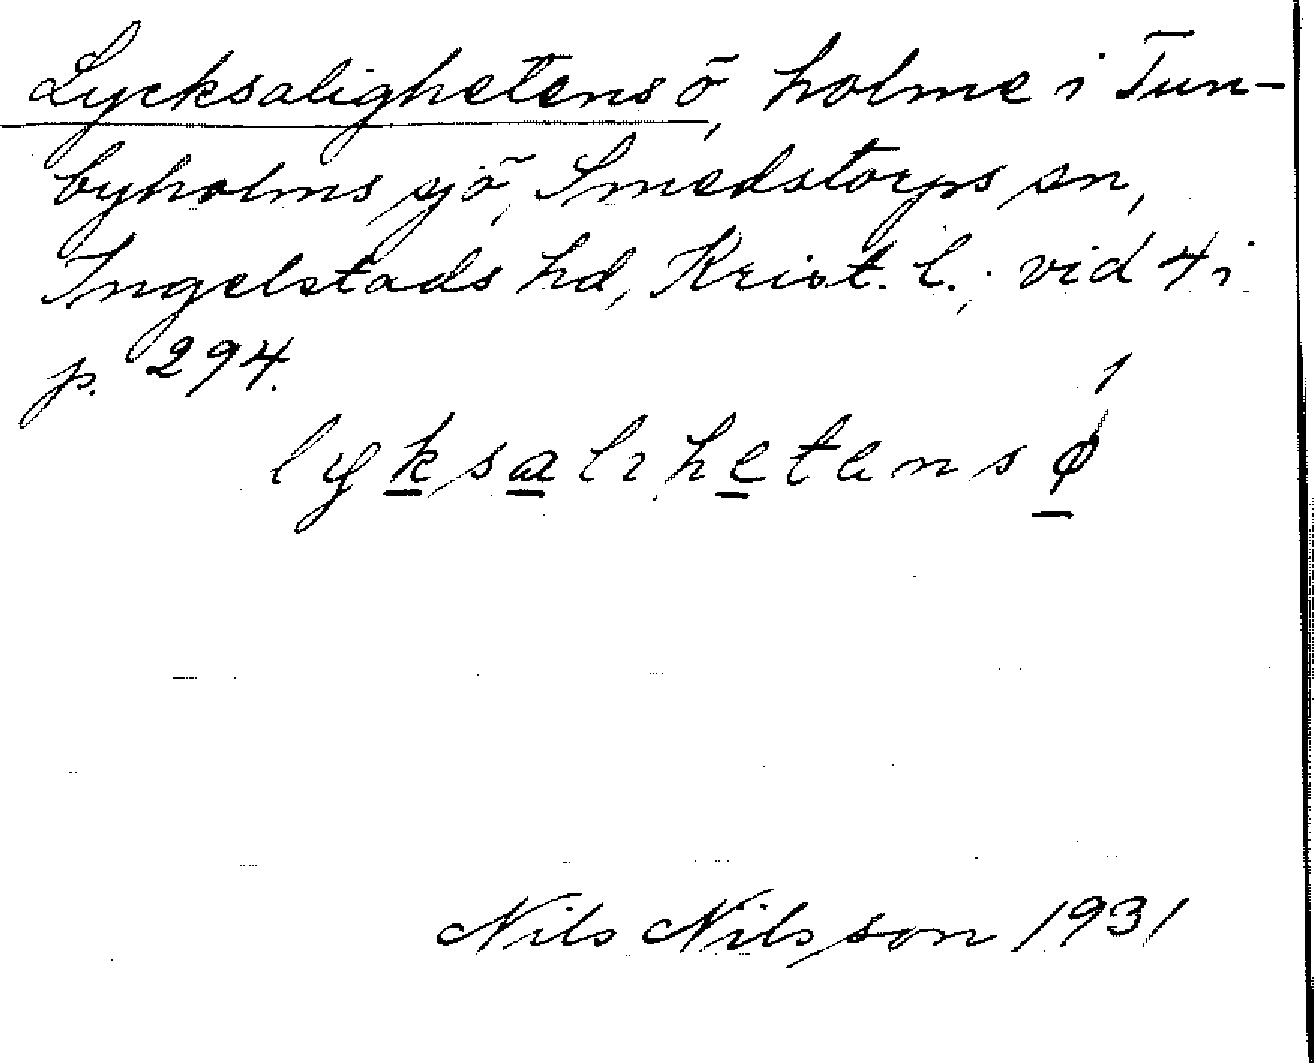 Lycksalighetens ö, holme i Tun-
byholms sjö, Smedstorps sn,
Ingelstads hd, Krist. l.; vid 4 i
p. 294.
lyksalihetensø
Nils Nilsson 1931